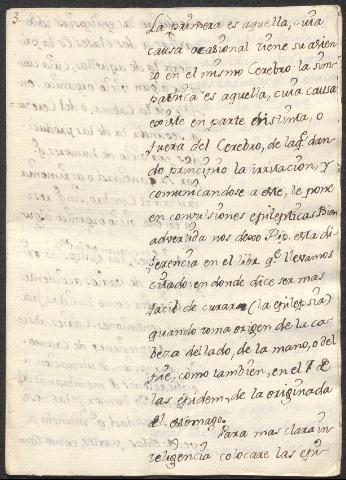 3.
La primera es aquella, cuia
causa ocasional tiene su asien-
to en el mismo Cerebro: la sim-
patica es aquella, cuia causa
existe en parte distinta, o
fuera del Cerebro, de laq.e dan-
do principio la irritacion, y
comunicandose a este, le pone
en convulsiones epilepticas. Bien
advertida nos dexo Hip. esta di-
ferencia en el libr. q.e llevamos
citado: en donde dice ser mas
facil de curar (la epilepsia)
quando toma origen de la ca-
beza del lado, de la mano, o del
pie, como tambien, en el 7 de
las epidem. de la originada
del estomago.
Para mas clara in-
teligencia colocare las epi-